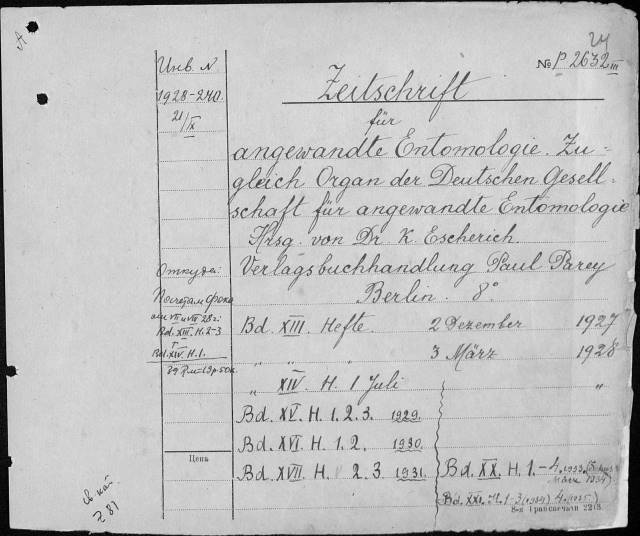 24
№ P 2632 III
Инв. N
1928-240.
21/IX
Zeitschrift
für
angewandte Entomologie. Zu-
gleich Organ der Deutschen Gesell-
schaft für angewandte Entomologie
Hrsg. von Dr. K. Escherich.
Откуда:
Verlagsbuchhandlung Paul Parey
Berlin. 8°
VII и VIII 28 г.
Bd. XIII. H. 2-3
Bd. XIV. H. 1.
Bd. XIII. Hefte. 2 Dezember 1927
" " " 3 März 1928
" XIV. H. 1 Juli "
Bd. XV. H. 1. 2. 3. 1929.
Bd. XVI. H. 1. 2. 1930.
Цена
Bd. XVII. H. 2. 3. 1931.
Bd. XX. H. 1.-4. 1933.
1934)
Bd. XXI. H. 1-3 (1934) 4. (1935)
8-я Транспечати 2218.